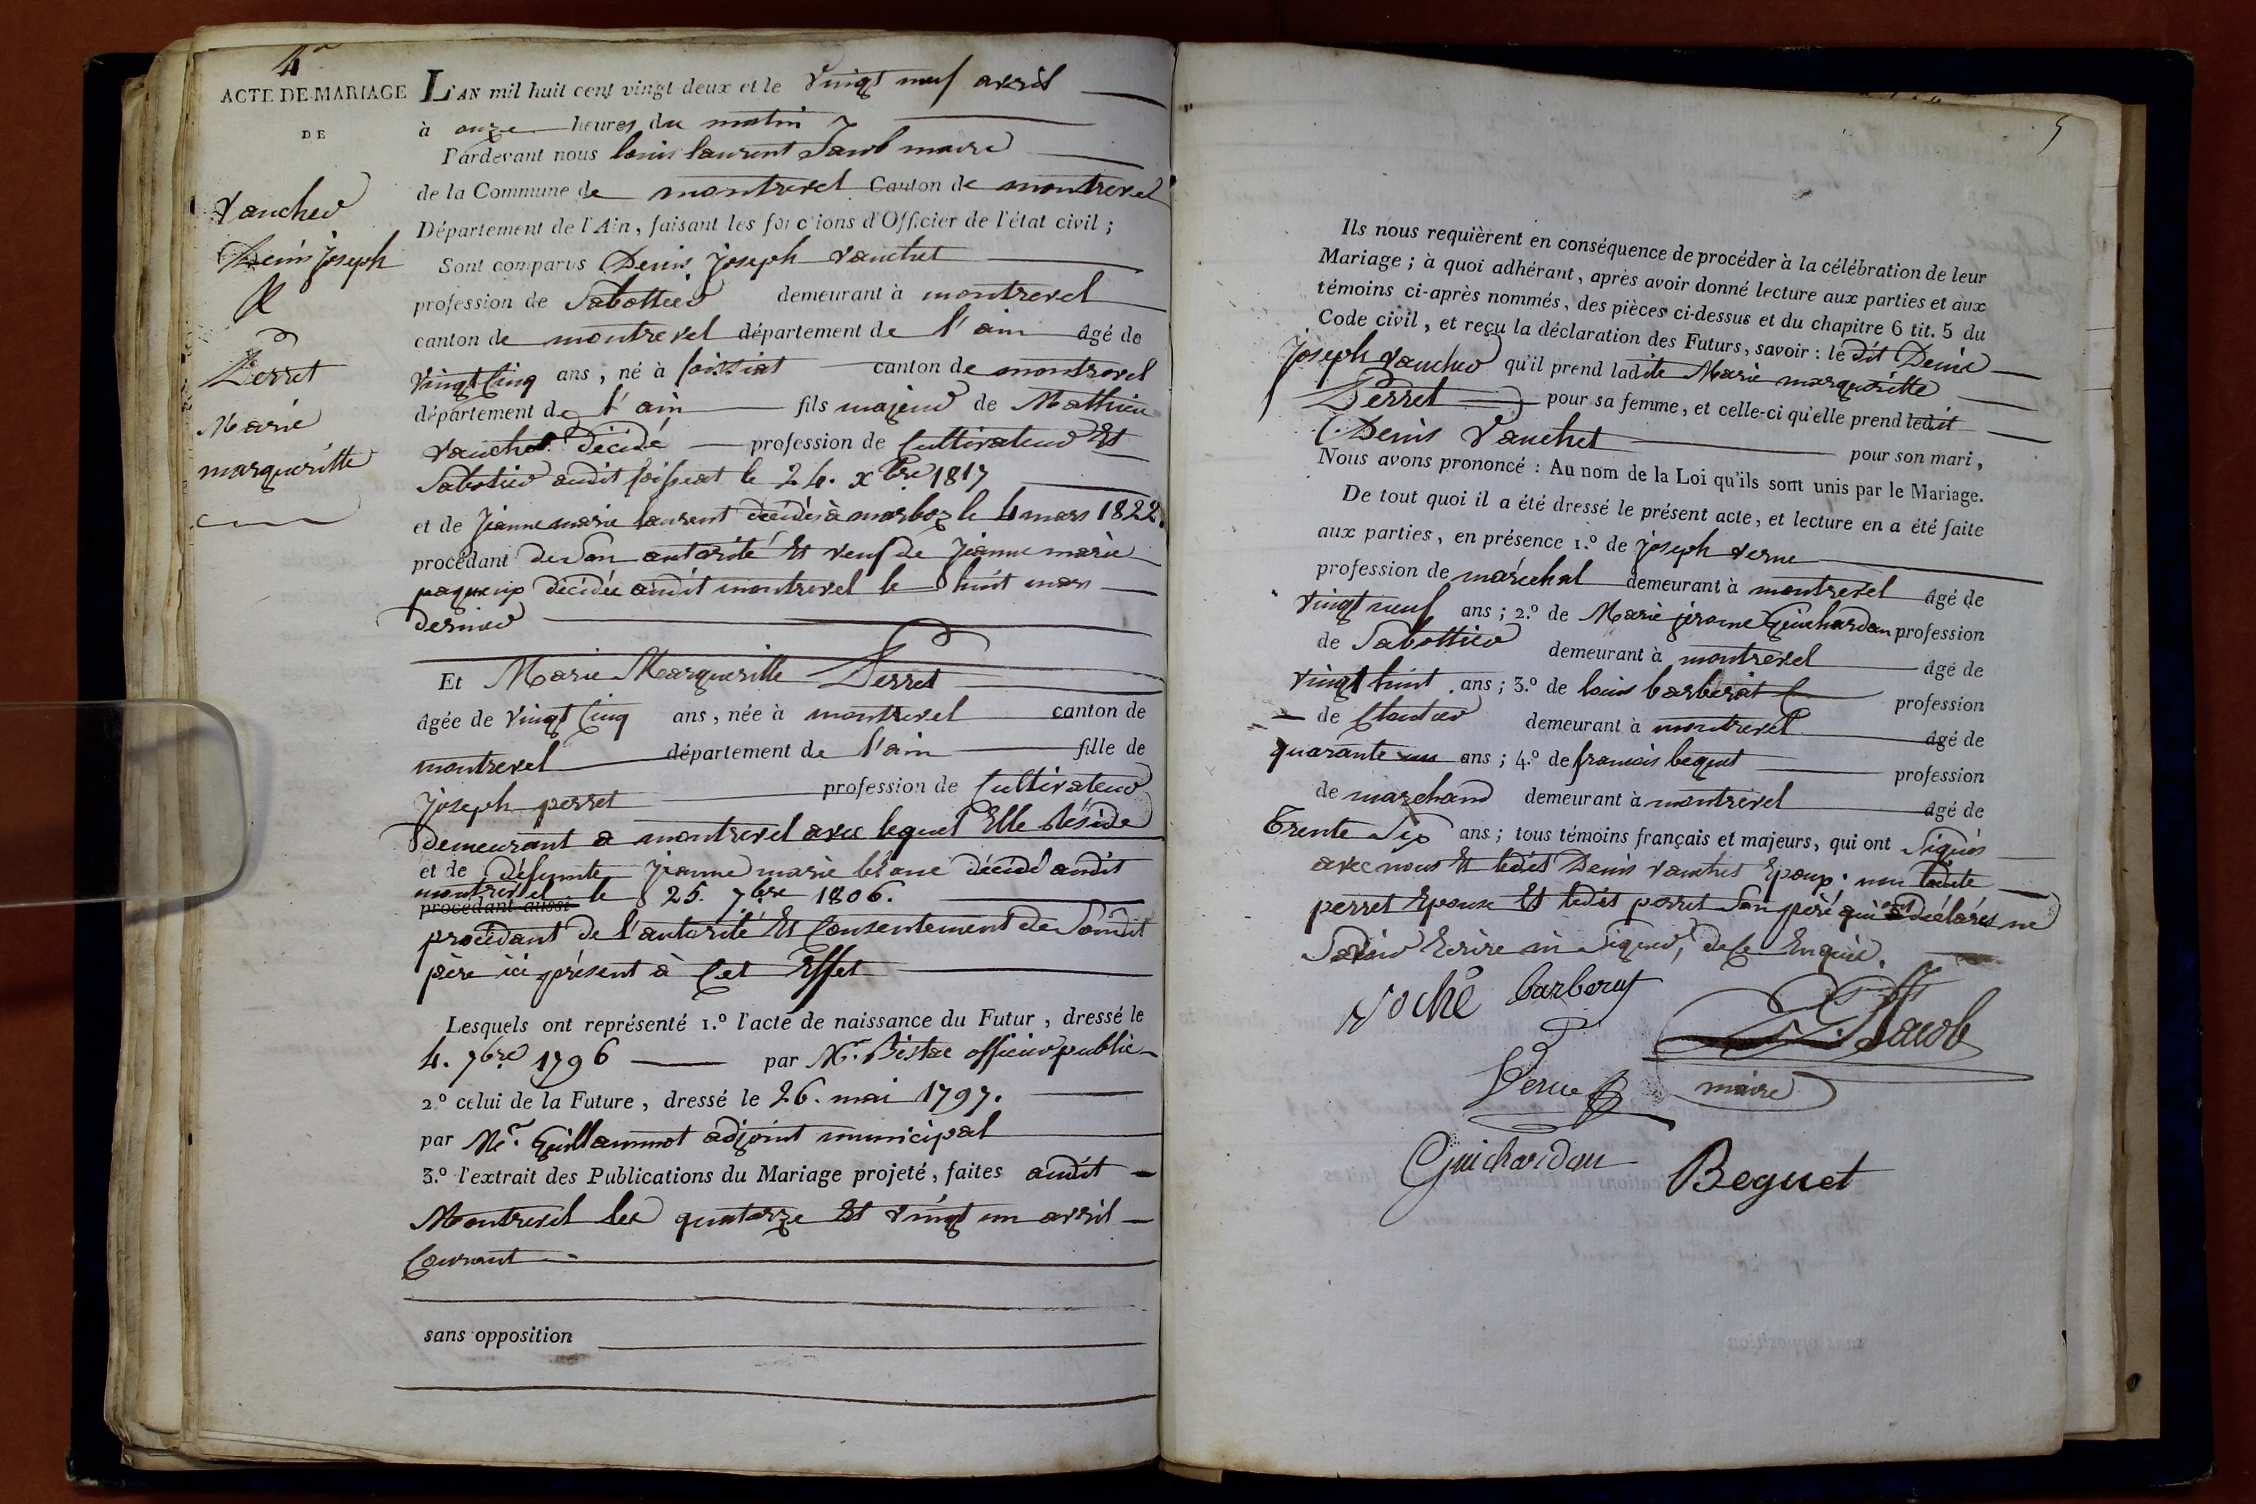 4e
ACTE DE MARIAGE
DE
Vaucher
Denis Joseph
&
Perret
Marie
margueritte
L'AN mil huit cent vingt-deux et le vingt neuf avril
à onze heures du matin
Pardevant nous louis laurent Jacob maire
de la Commune de montrevel Canton de montrevel
Département de l'Ain, faisant les fonctions d'Officier de l'état civil ;
Sont comparus Denis Joseph vauchet
profession de Sabottier demeurant à montrevel
canton de montrevel département de l'ain âgé de
vingt Cinq ans, né à foissiat canton de montrevel
département de l'ain fils majeur de Mathieu
vauchet décédé profession de Cultivateur Et
Sabotier audit foissiat le 24. xbre 1817
et de Jeanne marie laurent décédée à marboz le 4 mars 1822.
procédant de Son autorité Et veuf de Jeanne marie
décédée audit montrevel le huit mars
dernier
Et Marie Margueritte Perret
âgée de vingt Cinq ans, née à montrevel canton de
montrevel département de l'ain fille de
Joseph perret profession de Cultivateur
demeurant a montrevel avec lequel Elle Réside
et de défunte Jeanne marie décédé audit
montrevel le 25. 7bre 1806.
procédant aussi
procédant de l'autorité Et Consentement de Sondit
père ici présent à Cet Effet
Lesquels ont représenté 1.º l'acte de naissance du Futur, dressé le
4. 7bre 1796 par Mr. officier public
2.º celui de la Future, dressé le 26. mai 1797.
par Mr. Guillaumot adjoint municipal
3.º l'extrait des Publications du Mariage projeté, faites audit
Montrevel les quatorze Et vingt un avril
Courant
sans opposition
5
Ils nous requièrent en conséquence de procéder à la célébration de leur
Mariage ; à quoi adhérant, après avoir donné lecture aux parties et aux
témoins ci-après nommés, des pièces ci-dessus et du chapitre 6 tit. 5 du
Code civil, et reçu la déclaration des Futurs, savoir : le dit Denis
Joseph vaucher qu'il prend ladite Marie margueritte
Perret pour sa femme, et celle-ci qu'elle prend ledit
Denis Vauchet pour son mari,
Nous avons prononcé : Au nom de la Loi qu'ils sont unis par le Mariage.
De tout quoi il a été dressé le présent acte, et lecture en a été faite
aux parties, en présence 1.º de Joseph verne
profession de maréchal demeurant à montrevel âgé de
vingt neuf ans ; 2.º de Marie jerome Guichardan profession
de Sabottier demeurant à montrevel âgé de
vingt huit ans ; 3.º de louis barberat profession
de Cloutier demeurant à montrevel âgé de
quarante un ans ; 4.º de francois beguet profession
de marchand demeurant à montrevel âgé de
Trente Six ans ; tous témoins français et majeurs, qui ont Signés
avec nous Et ledit Denis vauchet Epoux ; non ladite
perret Epouse Et ledit perret Son père qui ont déclarés ne
Savoir Ecrire ni Signer, de Ce Enquis.
voché barberat
Jacob
Verne
maire
Guichardan Beguet